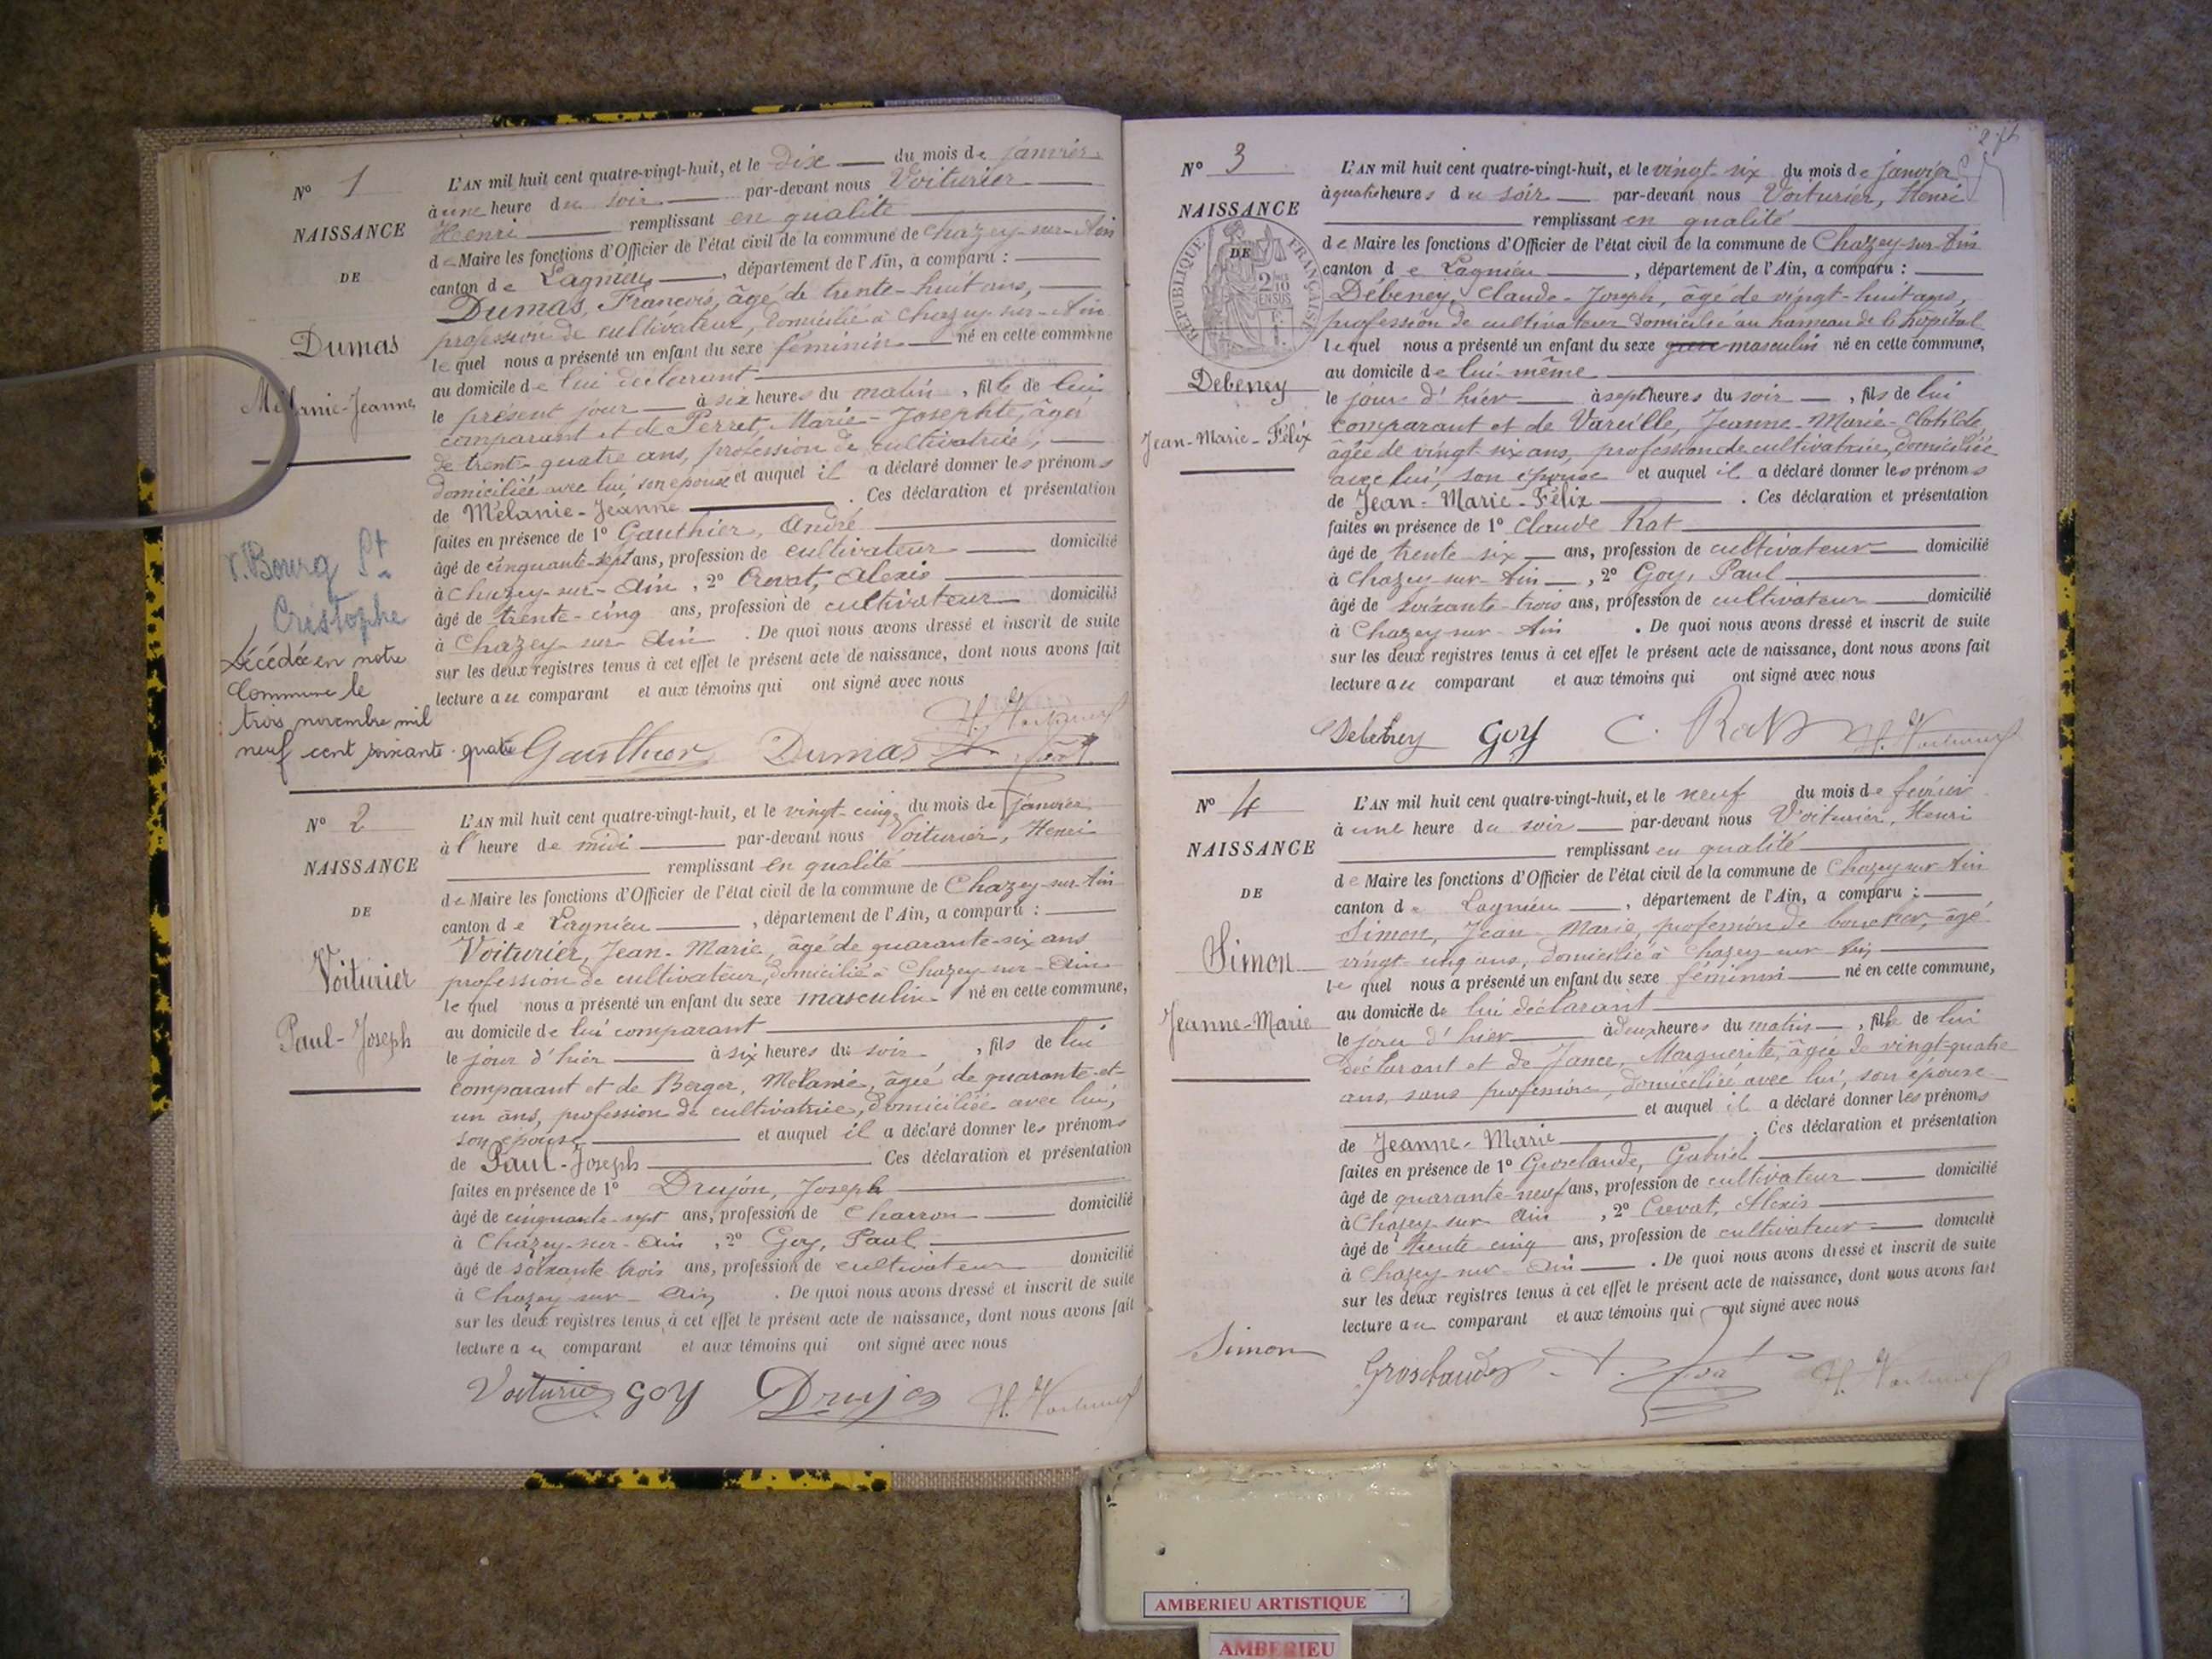 N° 1
NAISSANCE
DE
Dumas
Mélanie-Jeanne
V. Bourg St
Cristophe
Décédée en notre
Commune le
trois novembre mil
neuf cent soixante-quatre
L'AN mil huit cent quatre-vingt-huit, et le dix du mois de janvier
à une heure du soir par-devant nous Voiturier
Henri remplissant en qualité
de Maire les fonctions d'Officier de l'état civil de la commune de Chazey-sur-Ain
canton de Lagnieu, département de l'Ain, a comparu :
Dumas, François, âgé de trente-huit ans,
profession de cultivateur, domicilié à Chazey-sur-Ain
lequel nous a présenté un enfant du sexe féminin né en cette commune
au domicile de lui déclarant
le présent jour à six heures du matin, fille de lui
comparant et de Perret, Marie-Josephte, âgée
de trente-quatre ans, profession de cultivatrice,
domiciliée avec lui, son épouse et auquel il a déclaré donner les prénoms
de Mélanie-Jeanne. Ces déclaration et présentation
faites en présence de 1° Gauthier, André
âgé de cinquante-sept ans, profession de cultivateur domicilié
à Chazey-sur-Ain, 2° Crevat, Alexis
âgé de trente-cinq ans, profession de cultivateur domicilié
à Chazey-sur-Ain. De quoi nous avons dressé et inscrit de suite
sur les deux registres tenus à cet effet le présent acte de naissance, dont nous avons fait
lecture au comparant et aux témoins qui ont signé avec nous
Gauthier Dumas
N° 2
NAISSANCE
DE
Voiturier
Paul-Joseph
L'AN mil huit cent quatre-vingt-huit, et le vingt-cinq du mois de janvier
à l'heure de midi par-devant nous Voiturier, Henri
remplissant en qualité
de Maire les fonctions d'Officier de l'état civil de la commune de Chazey-sur-Ain
canton de Lagnieu, département de l'Ain, a comparu :
Voiturier, Jean-Marie, âgé de quarante-six ans
profession de cultivateur, domicilié à Chazey-sur-Ain
lequel nous a présenté un enfant du sexe masculin né en cette commune,
au domicile de lui comparant
le jour d'hier à six heures du soir, fils de lui
comparant et de Berger, Mélanie, âgée de quarante-et-
un ans, profession de cultivatrice, domiciliée avec lui,
son épouse et auquel il a déclaré donner les prénoms
de Paul-Joseph Ces déclaration et présentation
faites en présence de 1° Drujon, Joseph
âgé de cinquante-sept ans, profession de Charron domicilié
à Chazey-sur-Ain, 2° Goy, Paul
âgé de soixante-trois ans, profession de cultivateur domicilié
à Chazey-sur-Ain. De quoi nous avons dressé et inscrit de suite
sur les deux registres tenus à cet effet le présent acte de naissance, dont nous avons fait
lecture au comparant et aux témoins qui ont signé avec nous
Voiturier GOY Drujon H. Voiturier
N° 3
NAISSANCE
DE
RÉPUBLIQUE FRANÇAISE
Debeney
Jean-Marie-Félix
L'AN mil huit cent quatre-vingt-huit, et le vingt-six du mois de janvier
à quatre heures du soir par-devant nous Voiturier, Henri
remplissant en qualité
de Maire les fonctions d'Officier de l'état civil de la commune de Chazey-sur-Ain
canton de Lagnieu, département de l'Ain, a comparu :
Débeney, Claude-Joseph, âgé de vingt-huit ans,
profession de cultivateur domicilié au hameau de l'hôpital
lequel nous a présenté un enfant du sexe masculin né en cette commune,
au domicile de lui-même
le jour d'hier à sept heures du soir, fils de lui
comparant et de Vareille, Jeanne-Marie-Clotilde,
âgée de vingt-six ans, profession de cultivatrice, domiciliée
avec lui, son épouse et auquel il a déclaré donner les prénoms
de Jean-Marie-Félix. Ces déclaration et présentation
faites en présence de 1° Claude Rat
âgé de trente-six ans, profession de cultivateur domicilié
à Chazey-sur-Ain, 2° Goy, Paul
âgé de soixante-trois ans, profession de cultivateur domicilié
à Chazey-sur-Ain. De quoi nous avons dressé et inscrit de suite
sur les deux registres tenus à cet effet le présent acte de naissance, dont nous avons fait
lecture au comparant et aux témoins qui ont signé avec nous
Debeney GOY C. Rat H. Voiturier
N° 4
NAISSANCE
DE
Simon
Jeanne-Marie
L'AN mil huit cent quatre-vingt-huit, et le neuf du mois de février
à une heure du soir par-devant nous Voiturier, Henri
remplissant en qualité
de Maire les fonctions d'Officier de l'état civil de la commune de Chazey-sur-Ain
canton de Lagnieu, département de l'Ain, a comparu :
Simon, Jean-Marie, profession de boucher, âgé
vingt-cinq ans, domicilié à Chazey-sur-Ain
lequel nous a présenté un enfant du sexe féminin né en cette commune,
au domicile de lui déclarant
le jour d'hier à deux heures du matin, fille de lui
déclarant et de Jance, Marguerite, âgée de vingt-quatre
ans, sans profession, domiciliée avec lui, son épouse
et auquel il a déclaré donner les prénoms
de Jeanne-Marie. Ces déclaration et présentation
faites en présence de 1° Grosclaude, Gabriel
âgé de quarante-neuf ans, profession de cultivateur domicilié
à Chazey-sur-Ain, 2° Crevat, Alexis
âgé de trente-cinq ans, profession de cultivateur domicilié
à Chazey-sur-Ain. De quoi nous avons dressé et inscrit de suite
sur les deux registres tenus à cet effet le présent acte de naissance, dont nous avons fait
lecture au comparant et aux témoins qui ont signé avec nous
Simon Grosclaude H. Voiturier
AMBERIEU ARTISTIQUE
AMBERIEU